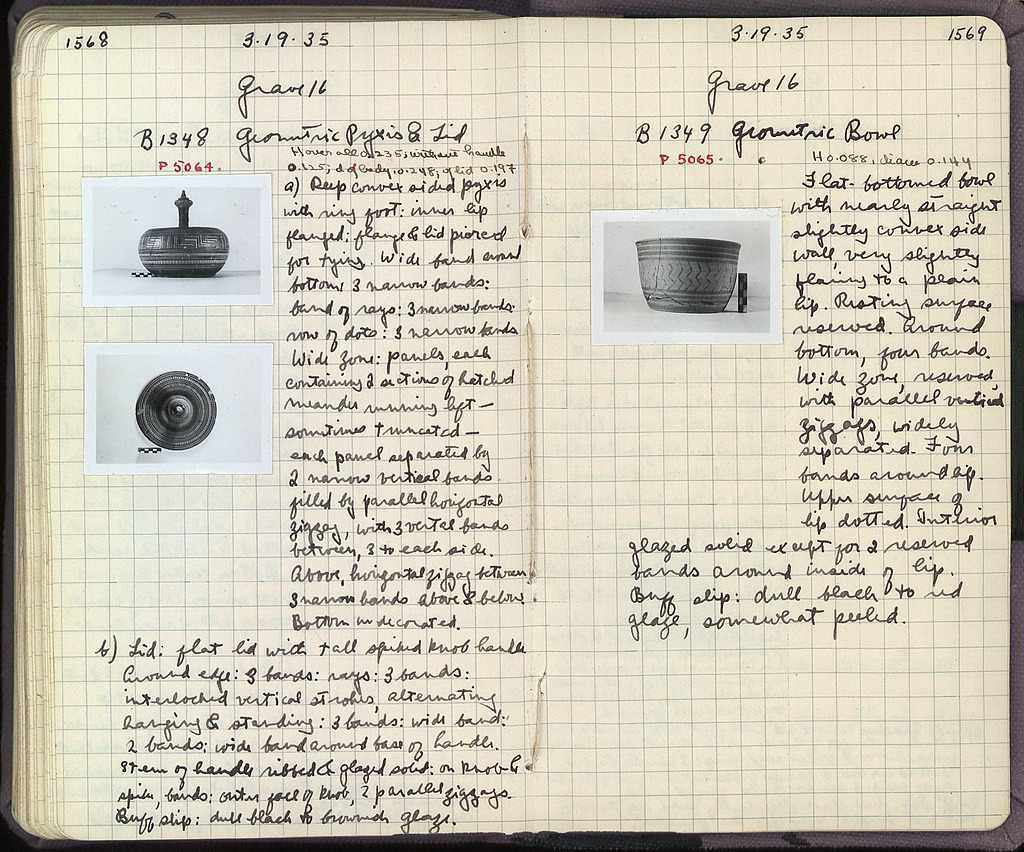 1568
3·19·35
Grave 16
B 1348 Geometric Pyxis & Lid
P 5064.
H over all 0.235; without handle
0.125; d of body, 0.248; of lid 0.197
a) Deep convex sided pyxis
with ring foot: inner lip
flanged; flange & lid pierced
for tying. Wide band around
bottom 3 narrow bands:
band of rays: 3 narrow bands:
row of dots: 3 narrow bands
Wide zone: panels, each
containing 2 sections of hatched
meander running left —
sometimes truncated —
each panel separated by
2 narrow vertical bands
filled by parallel horizontal
zigzag, with 3 vertal bands
between, 3 to each side.
Above, horizontal zigzag between
3 narrow bands above & below.
Bottom undecorated.
b) Lid: flat lid with tall spiked knob handle
Around edge: 3 bands: rays: 3 bands:
interlocked vertical strokes, alternating
hanging & standing: 3 bands: wide band:
2 bands: wide band around base of handle.
Stem of handle ribbed & glazed solid: on knob &
spike, bands: outer face of knob, 2 parallel zigzags.
Buff slip: dull black to brownish glaze.
3·19·35
1569
Grave 16
B 1349 Geometric Bowl
P 5065.
H 0.088, diam 0.144
Flat-bottomed bowl
with nearly straight
slightly convex side
wall, very slightly
flaring to a plain
lip. Resting surface
reserved. Around
bottom, four bands.
Wide zone, reserved,
with parallel vertical
zigzags, widely
separated. Four
bands around lip.
Upper surface of
lip dotted. Interior
glazed solid except for 2 reserved
bands around inside of lip.
Buff slip: dull black to red
glaze, somewhat peeled.